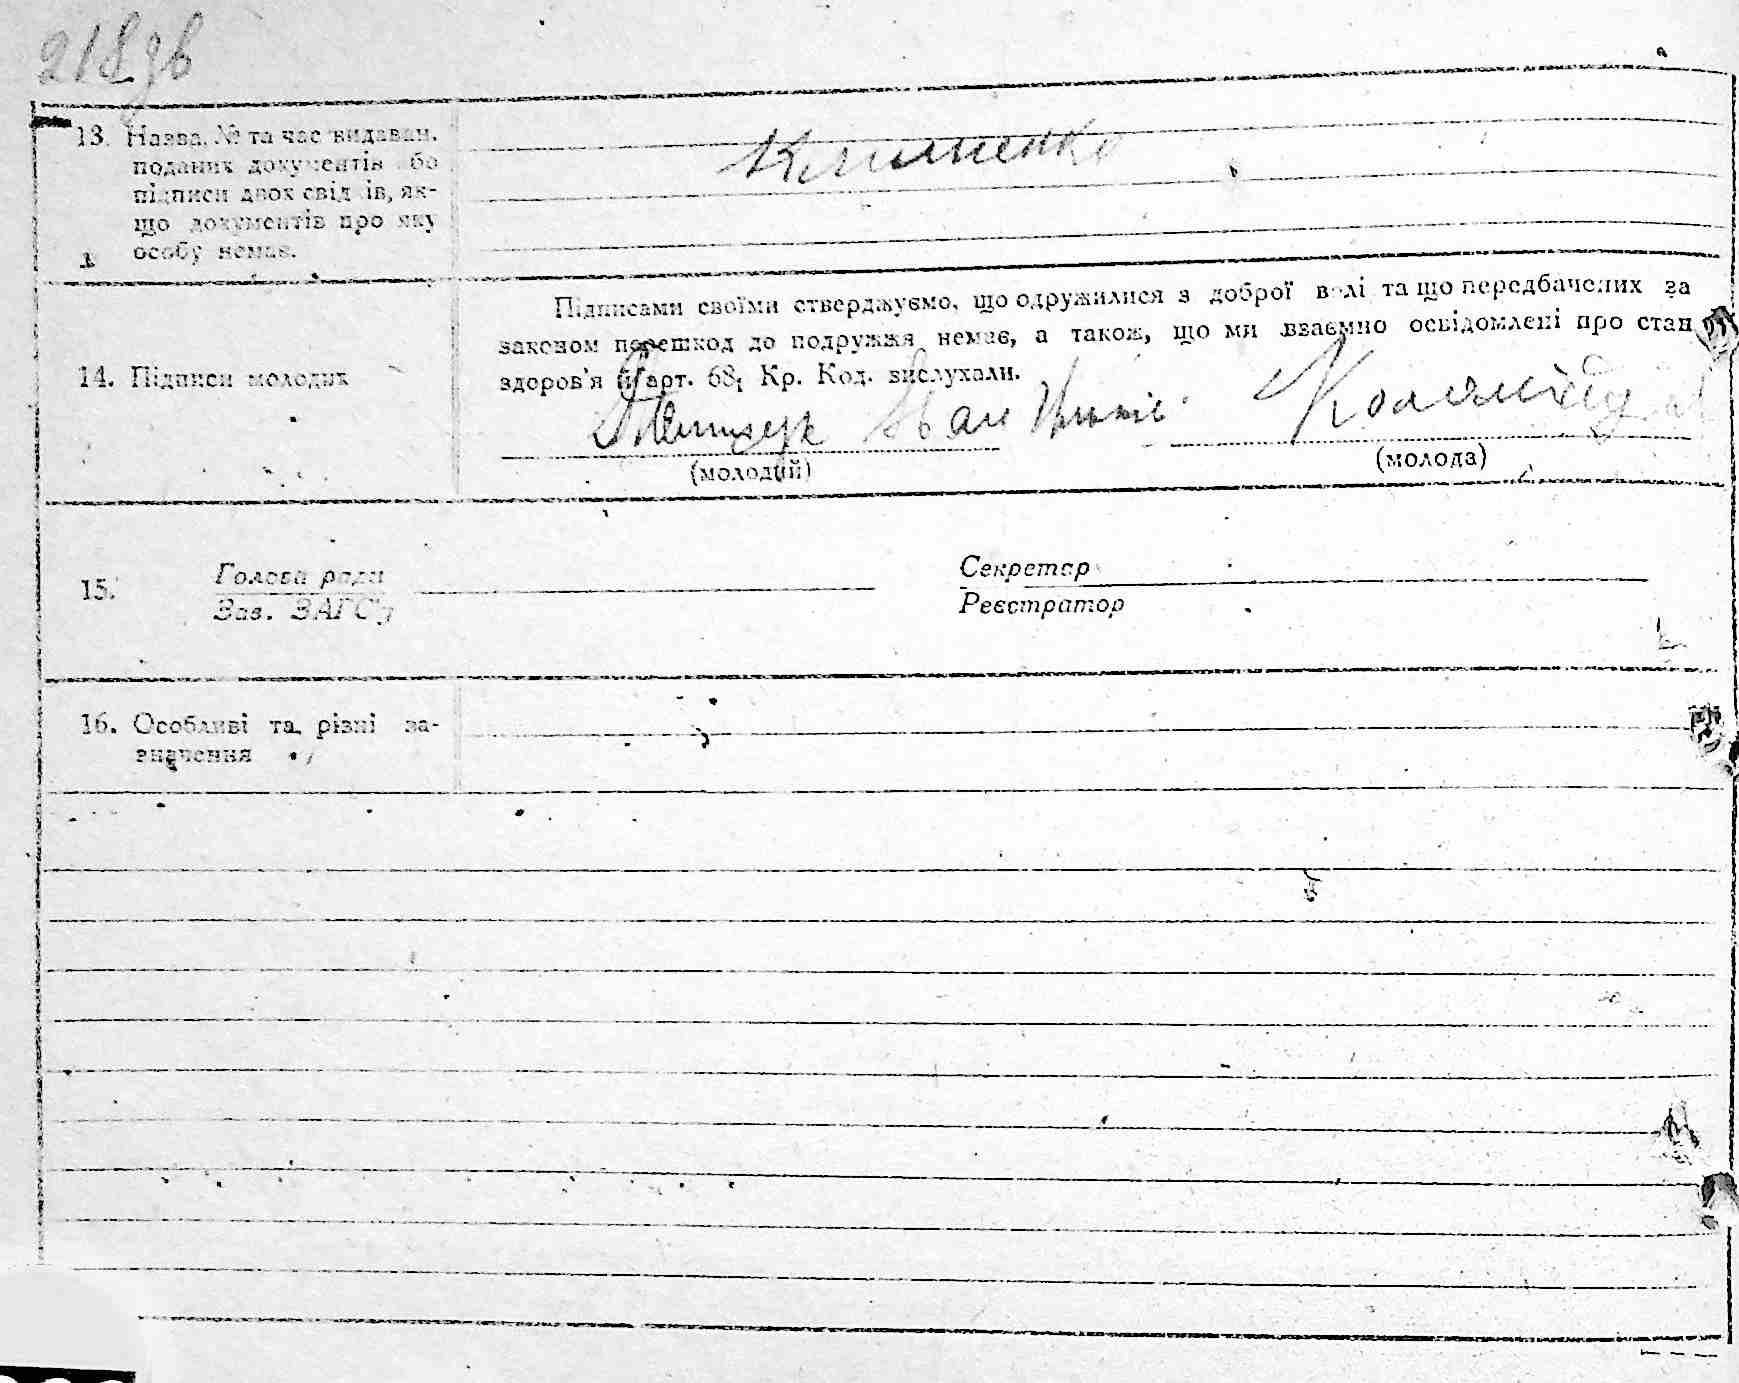 218зв
13. Назва, № та час видаван.
поданих документів або
підписи двох свідків, як-
що документів про яку
особу немає.
Клименко
Підписами своїми стверджуємо, що одружилися з доброї волі та що передбачених за
законом перешкод до подружжя немає, а також, що ми взаємно освідомлені про стан
здоров'я й арт. 68, Кр. Код. вислухали.
14. Підписи молодих
Іван
(молодий)
(молода)
15.
Голова ради
Секретар
Зав. ЗАГС'у
Реєстратор
16. Особливі та різні за-
значення